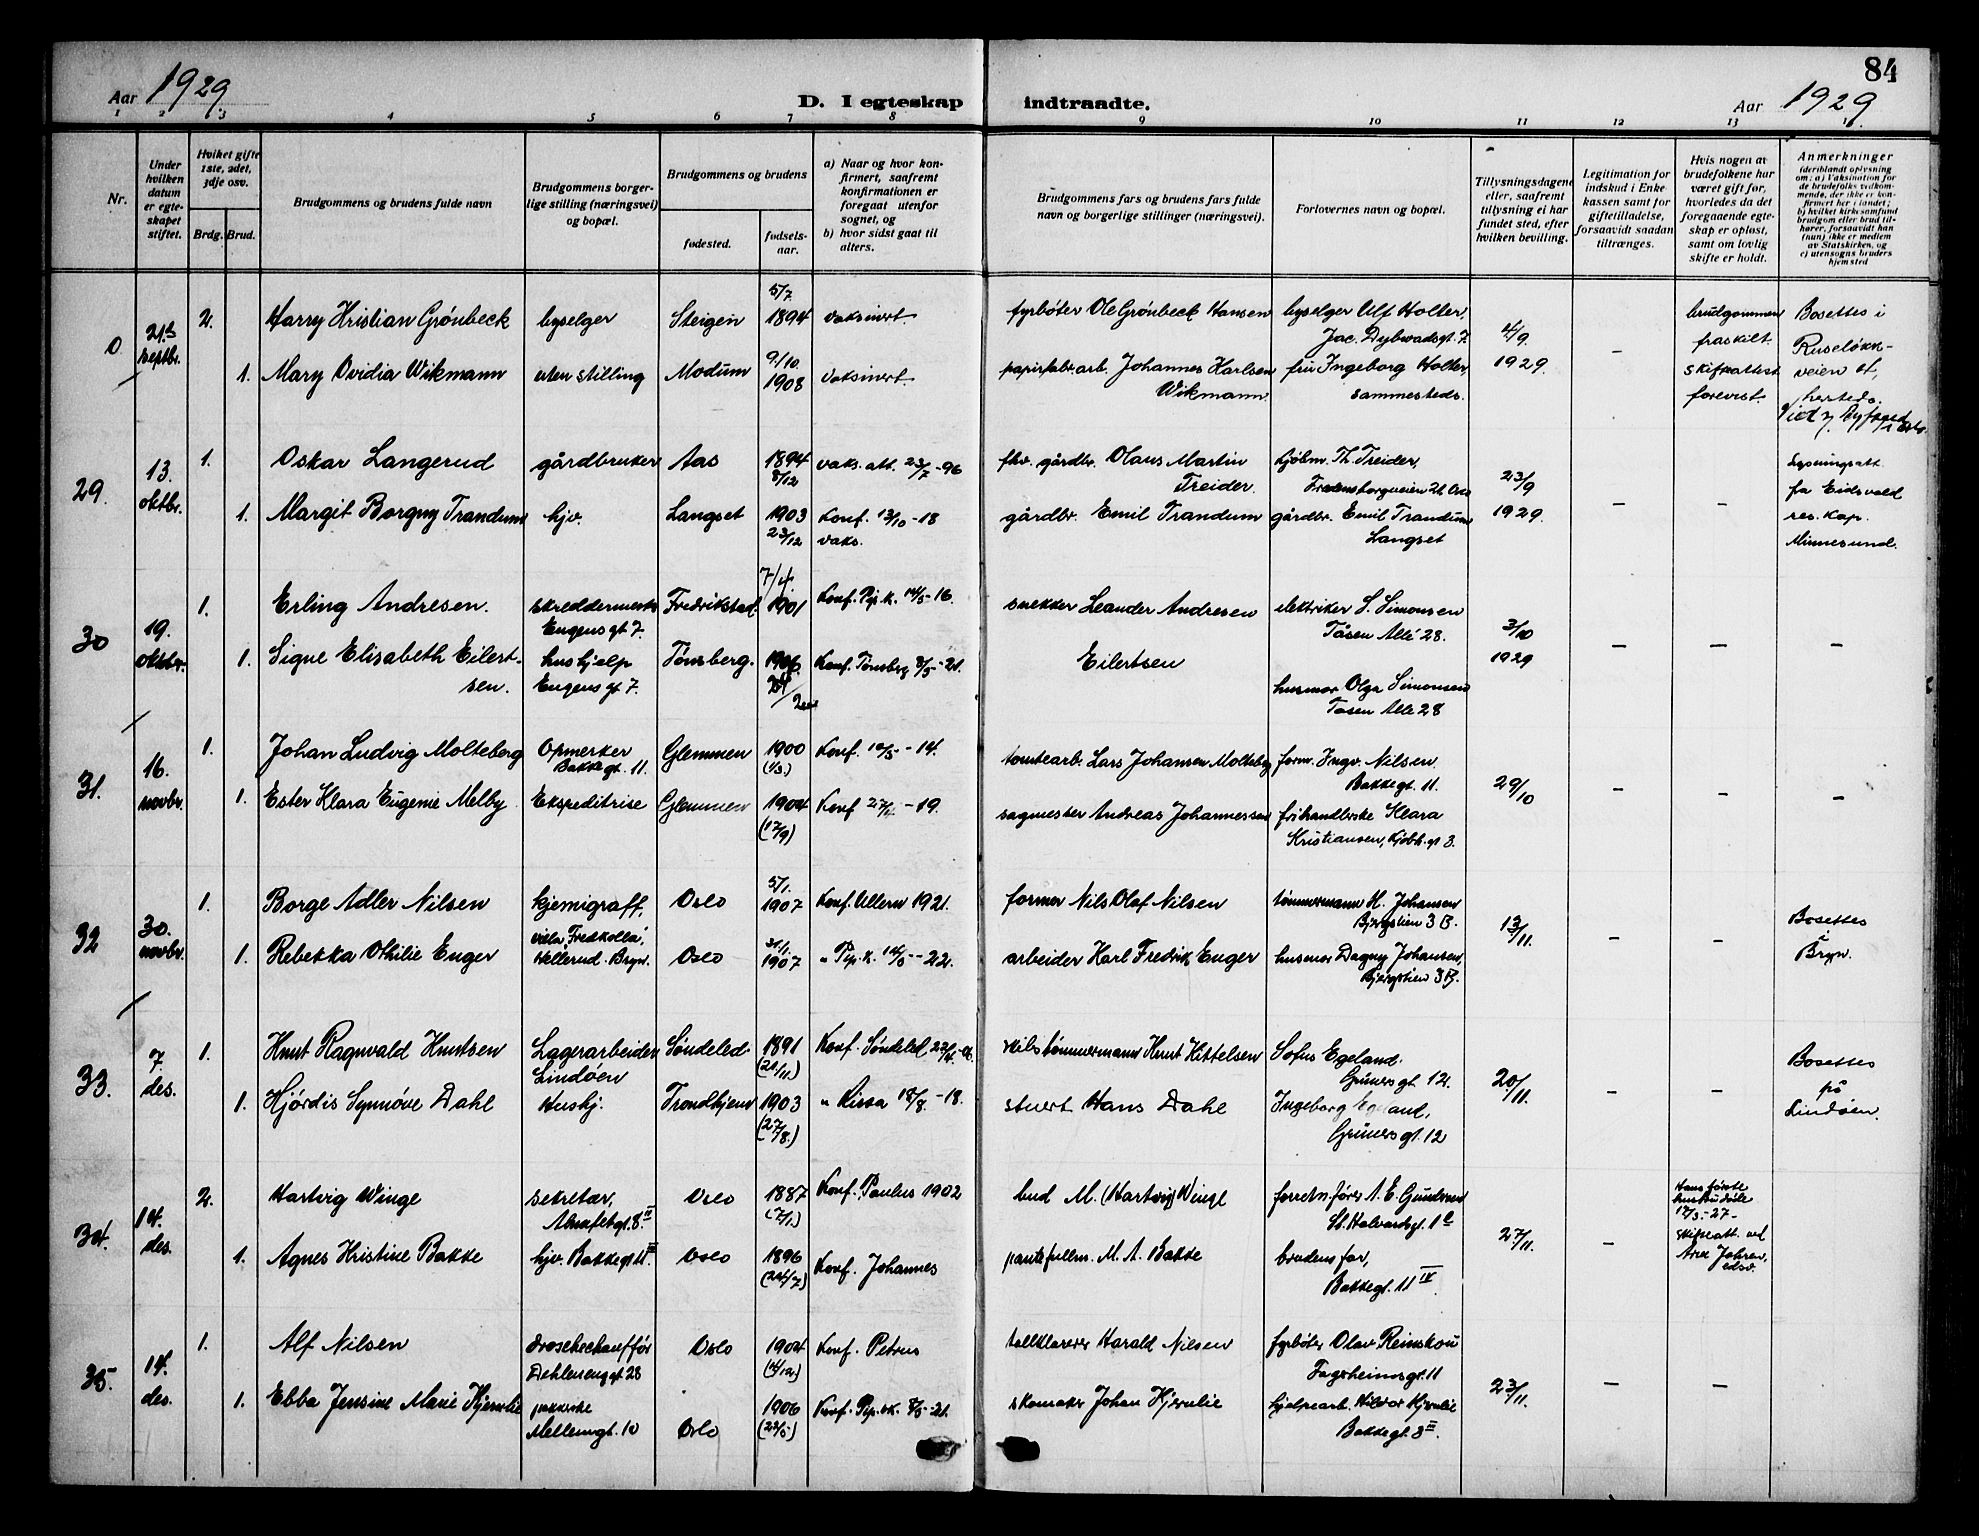 84
Aar 1929
D. I egteskap indtraadte.
Aar 1929
1 2 3 4 5 6 7 8 9 10 11 12 13
Nr.
Under hvilken datum er egteskapet stiftet.
Hviket gifte 1ste, 2det, 3dje osv.
Brdg. Brud.
Brudgommens og brudens fulde navn
Brudgommens borgerlige stilling (næringsvei) og bopæl.
Brudgommens og brudens
fødested.
fødselsaar.
a) Naar og hvor konfirmert, saafremt konfirmationen er foregaat utenfor sognet, og
b) hvor sidst gaat til alters.
Brudgommens fars og brudens fars fulde navn og borgerlige stillinger (næringsvei).
Forlovernes navn og bopæl.
Tillysningsdagene eller, saafremt tillysning ei har fundet sted, efter hvilken bevilling.
Legitimation for indskud i Enkekassen samt for giftetilladelse, forsaavidt saadan tiltrænges.
Hvis nogen av brudefolkene har været gift før, hvorledes da det foregaaende egteskap er opløst, samt om lovlig skifte er holdt.
Anmerkninger (deriblandt oplysning om: a) Vaksination for de brudefolks vedkommende, der ikke er konfirmert her i landet; b) hvilket kirkesamfund brudgom eller brud tilhører, forsaavidt han (hun) ikke er medlem av Statskirken, og c) utensogns bruders hjemsted
0 21de septbr. 2. Harry Kristian Grönbeck byselger Steigen 5/7 1894 vaksinert. fyrbøter Ole Grönbeck Hansen byselger Ulf Holter, Jac. Dybwadsgt. 7 4/9. 1929. – brudgommen fraskilt. skifteattest forevist. Bosettes i Ruseløkkveien 4, hersteds.
1. Mary Ovidia Wikmann uten stilling Modum 9/10. 1908 vaksinert papirfabr.arb. Johannes Karlsen Wikmann fru Ingeborg Holter, sammesteds.
29. 13. oktbr. 1. Oskar Langerud gårdbruker Aas 1894 8/12 vaks. att. 23/7-96 fhv. gårdbr. Olaus Martin Treider. kjøbm. Th. Treider, Fredensborgveien 24 Oslo 23/9 1929. – – Lysningsatt. fra Eidsvold res. kap. Minnesund.
1. Margit Borgny Trandum hjv. Langset 1903 23/12 Konf. 13/10-18 vaks. gårdbr. Emil Trandum gårdbr. Emil Trandum Langset
30 19. oktbr. 1. Erling Andresen. skreddermester Eugens gt 7. Fredrikstad. 7/4 1901 Konf. Pip. k. 14/5-16. snekker Leander Andresen elektriker S. Simonsen Tåsen Allé 28. 3/10 1929 – – –
1. Signe Elisabeth Eilertsen. hushjelp Eugens gt 7. Tönsberg. Konf. Tønsberg 8/5-21. Eilertsen husmor Olga Simonsen Tåsen Alle 28
31. 16. novbr. 1. Johan Ludvig Molteberg Opmerker Bakkegt. 11. Glemmen 1900 (1/3.) Konf. 10/5-14. tomtearb. Lars Johansen Molteberg form. Ingv. Nilsen. Bakkegt. 11. 29/10 – – –
1. Ester Klara Eugenie Melby Ekspeditrise Glemmen 1904 (17/9) Konf 27/4-19. sagmester Andreas Johannessen frihandlerske Klara Kristiansen, Kjøbh. gt 3.
32 30. novbr. 1. Borge Adler Nilsen kjemigraff, villa "Fredkolla", Hellerud. Bryn. Oslo 5/1. 1907 Konf. Ullern 1921. former Nils Olaf Nilsen tømmermann H. Johansen Bjergstien 3 B. 13/11. – – Bosettes i Bryn.
1. Rebekka Othilie Enger Oslo 31/1. 1907 " Pip. k. 14/5--22. arbeider Karl Fredrik Enger husmor Dagny Johansen, Bjergstien 3 B.
33. 7. des. 1. Knut Ragnvald Knutsen Lagerarbeider Lindøen Søndeled. 1891 Konf. Søndeled tømmermann Knut Kittelsen Sofus Egeland. Grüners gt. 12. 20/11. – – Bosettes på Lindøen.
1. Hjördis Synnöve Dahl Hushj. Trondhjem 1903 (27/8.) " Rissa 18/8.-18. stuert Hans Dahl Ingeborg Egeland, Grüners gt. 12
34. 14. des. 2. Hartvig Winge sekretær, Oslo 1887 (7/1.) Konf. Paulus 1902 bud M. (Hartvig) Winge forretn.fører A. E. Gundersen St. Halvardsgt. 1 c 27/11. – Hans første hustru døde 17/3.-27- skifteatt. ved Arne Johren, edsv.
1. Agnes Kristine Bakke hjv. Bakkegt 11. Oslo 1896 Konf. Johannes pantefullm. M. A. Bakke brudens far, Bakkegt. 11 IV
35. 14. des. 1. Alf Nilsen droschechauffør Dehlenenggt 28 Oslo 1904 Konf. Petrus tollklarerer Harald Nilsen fyrbøter Olav Reinskou Fagerheimsgt. 11 23/11. – –
1. Ebba Jensine Marie Hjemlie pakkerske Mellemgt. 10 Oslo 1906 (22/5) Konf. Pip.vk. 8/5-21. skomaker Johan Hjemlie hjelpearb. Hilmar Hjemlie Bakkegt. 3 III.